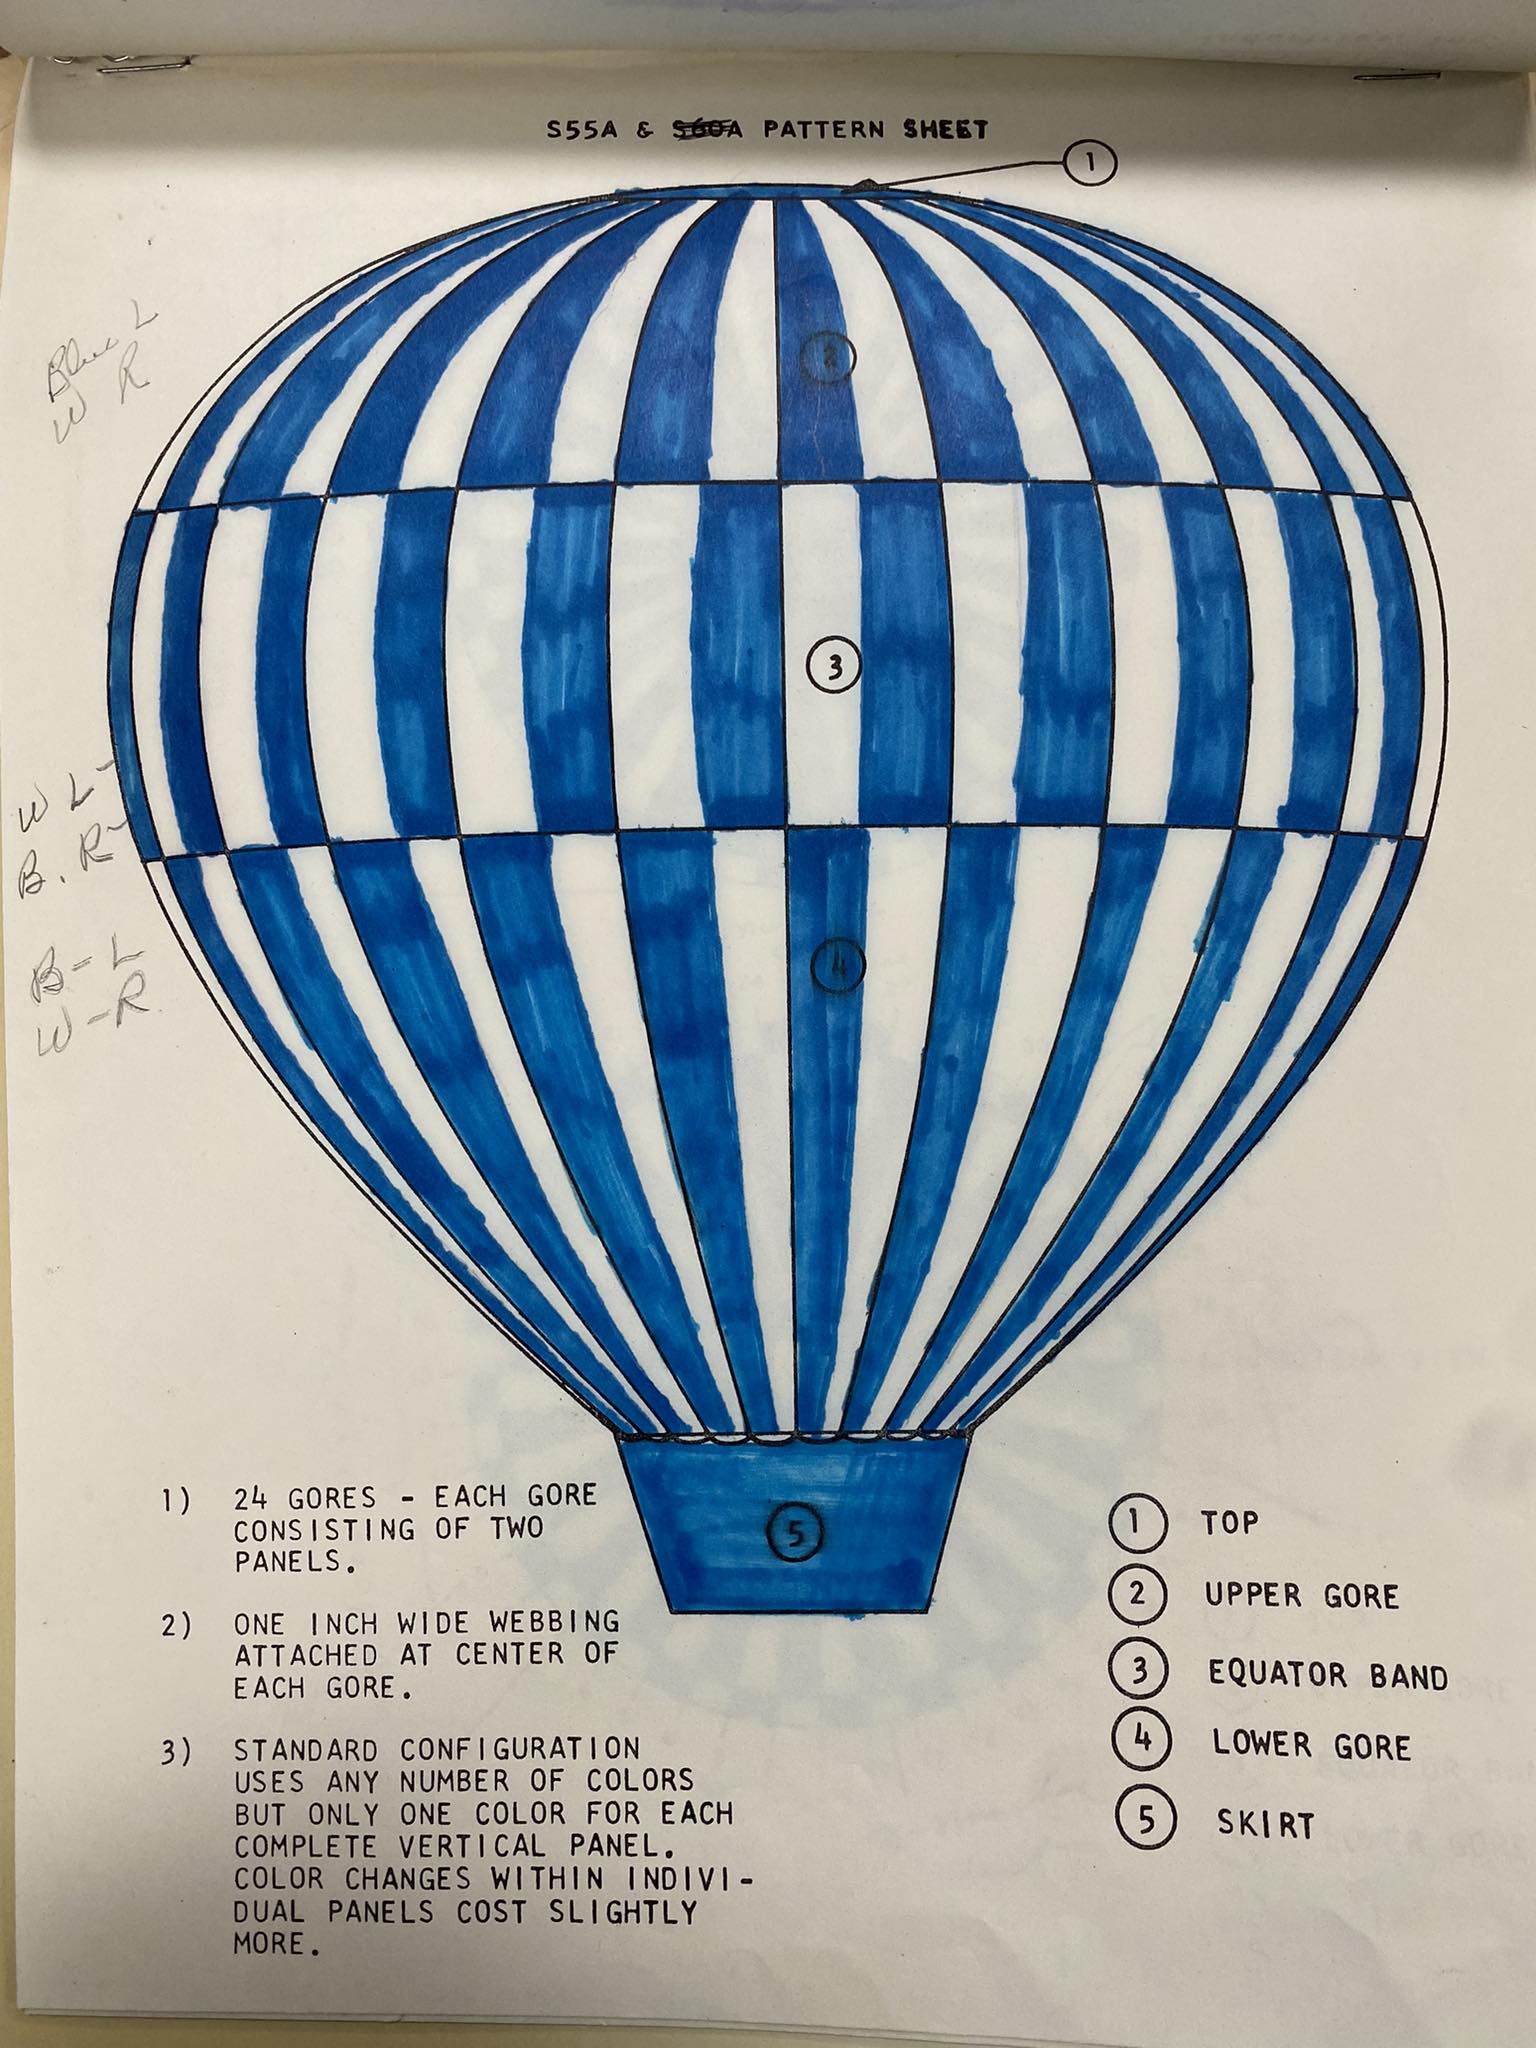 S55A & S60A PATTERN SHEET
1
Blue L
W R
2
3
W L-
B. R-
B-L
W-R
4
5
1) 24 GORES - EACH GORE
CONSISTING OF TWO
PANELS.
2) ONE INCH WIDE WEBBING
ATTACHED AT CENTER OF
EACH GORE.
3) STANDARD CONFIGURATION
USES ANY NUMBER OF COLORS
BUT ONLY ONE COLOR FOR EACH
COMPLETE VERTICAL PANEL.
COLOR CHANGES WITHIN INDIVI-
DUAL PANELS COST SLIGHTLY
MORE.
1 TOP
2 UPPER GORE
3 EQUATOR BAND
4 LOWER GORE
5 SKIRT